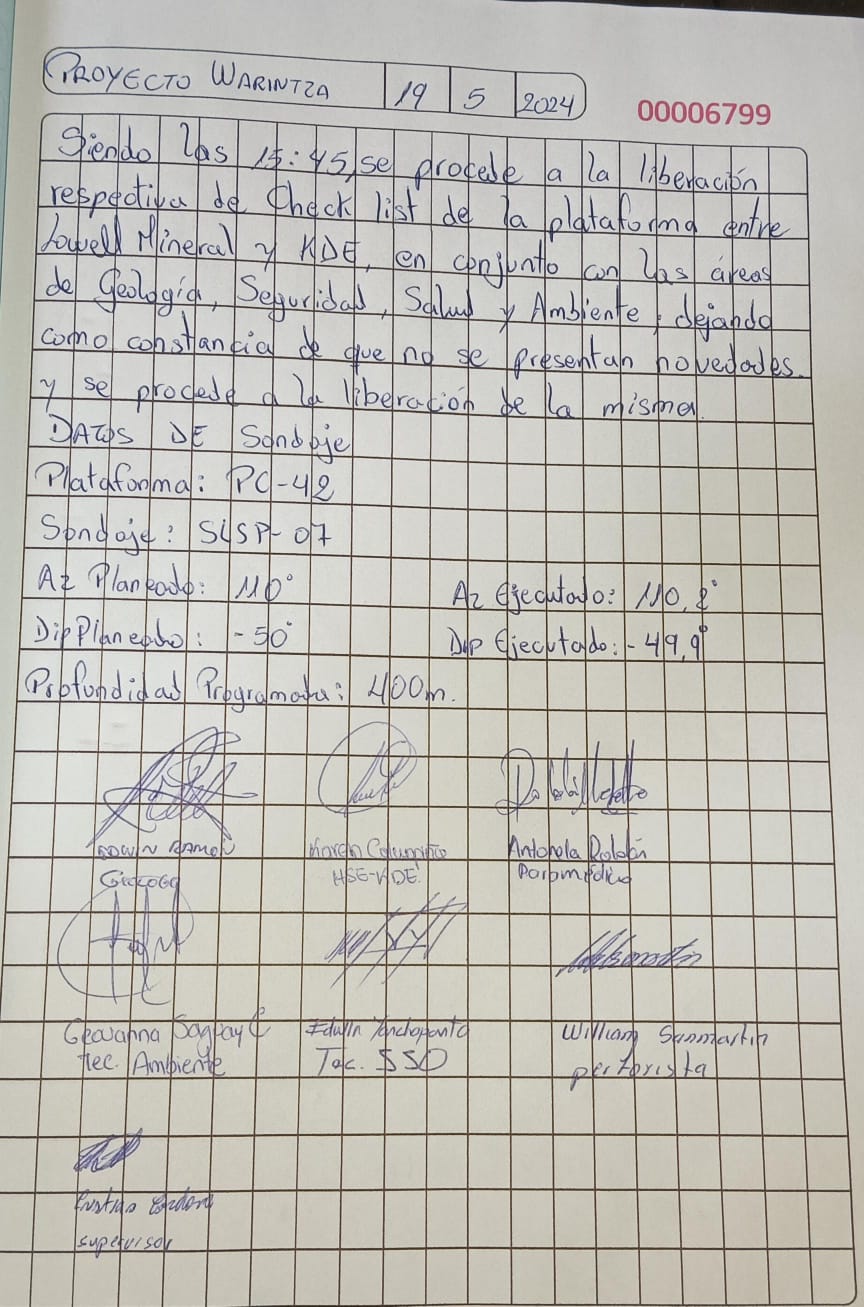 PROYECTO WARINTZA 19 5 2024
00006799
Siendo las 15:45, se procede a la liberación
respectiva de Check list de la plataforma entre
Lowell Mineral y KDE, en conjunto con las áreas
de Geología, Seguridad, Salud y Ambiente, dejando
como constancia de que no se presentan novedades.
y se procede a la liberación de la misma.
DATOS DE Sondaje
Plataforma: PC-42
Sondaje: SLSP-07
Az Planeado: 110° Az Ejecutado: 110,2°
Dip Planeado: -50° Dip Ejecutado: -49,9°
Profundidad Programada: 400m.
EDWIN RAMON Karen Antonela Roldán
GEOLOGO HSE-KDE Paramédico
Geovanna Sagbay C Edwin William Sanmartin
Tec. Ambiente Tec. SSO perforista
supervisor